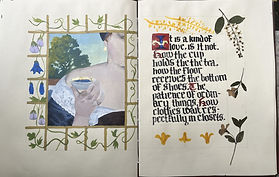 It is a kind of
love, is it not.
How the cup
holds the tea,
how the floor
receives the bottom
of shoes. The
patience of ordin-
ary things, how
clothes wait res-
pectfully in closets.